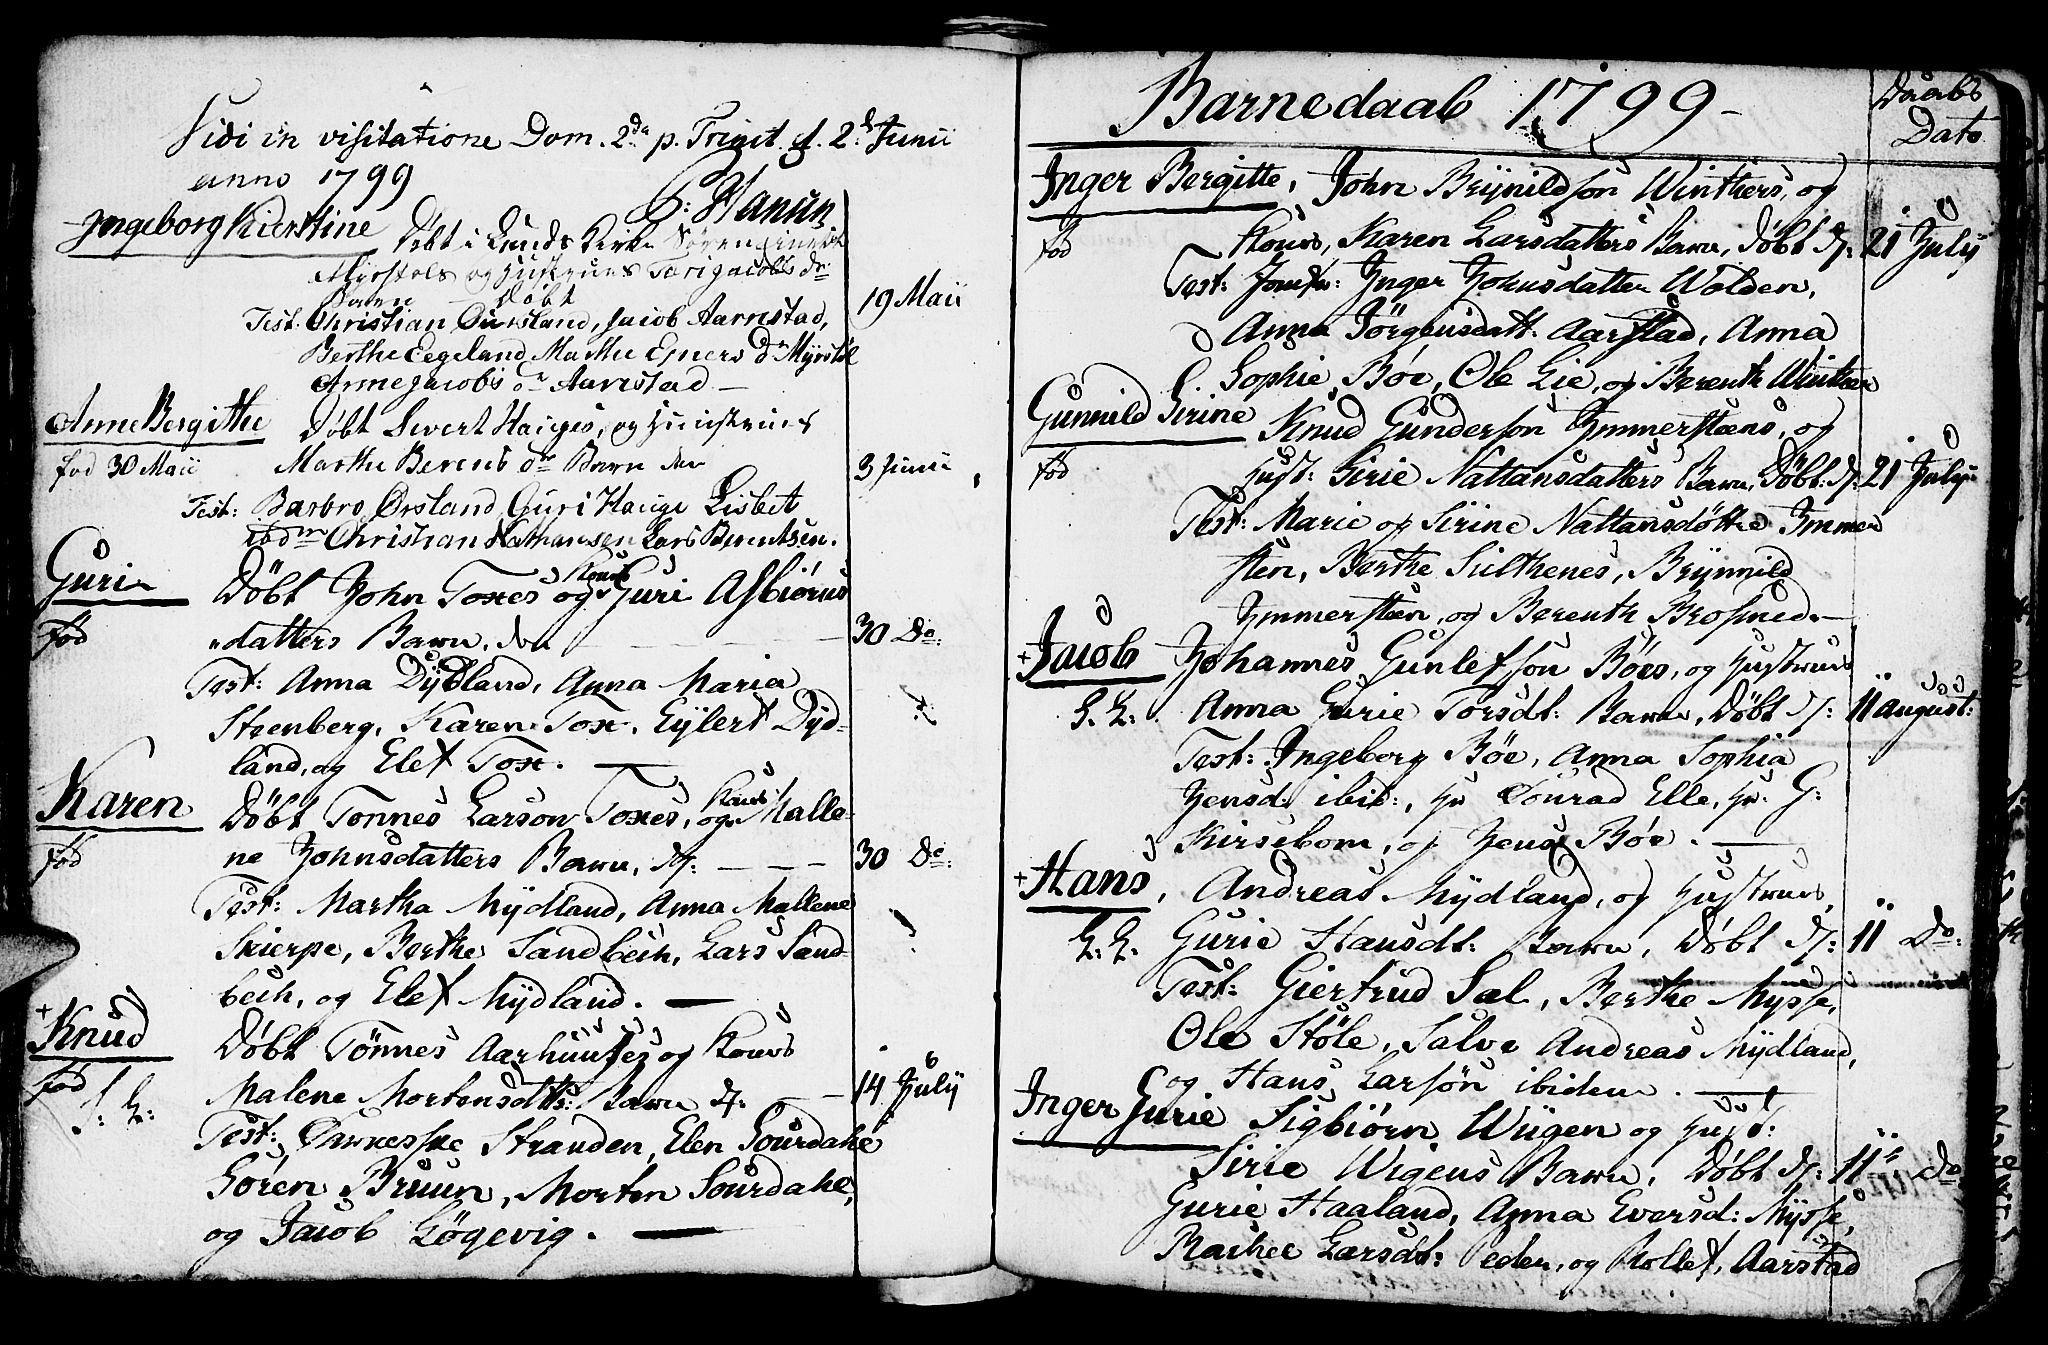 Vidi in visitatione Dom. 2da p. Trinit. d. 2d Junii
anno 1799
P: Hansen
Ingeborg Kierstine Døbt i Lunds Kirke Søren
Myrstøls og Hustrues Tarri Jacobs dr
Barn Døbt 19 Maii
Test: Christian Ouvsland, Jacob Aarrestad,
Berthe Eegeland, Marthe Ejners dr Myrstøl
Anne Jacobs dr Aarrestad —
Anne Bergithe Døbt Sivert Hauges, og Hunstrues
fød 30 Maii Marthe Berens dr Barn den 3 Junii
Test: Barbro Ørsland, Guri Hauge Lisbet
ibdm Christian Nathansen Lars Berentsen.
Guri Døbt John Toxes og Kones Guri Asbiørns
fød datters Barn, den — 30 Do:
Test: Anna Dydland, Anna Maria
Steenberg, Karen Tox, Eylert Dyd-
land, og Elef Tox. —
Karen Døbt Tonnes Larson Toxes, og Kones Malle-
fød ne Johnsdatters Barn, d: — — — 30 Do:
Test: Martha Mydland, Anna Mallene
Skierpe, Berthe Sandbech, Lars Sand-
bech, og Elef Mydland. —
+ Knud Døbt Tønnes Aarhuuses og Kones
fød Malene Mortensdtts: Barn d: — 14 July
Test: Stranden, Elen Sourdahl
Søren Bruun, Morten Sourdahl,
og Jacob Løgevig. —
Barnedaab 1799 –
Daabs
Dato
Inger Bergitte, John Brynildson Winthers, og
fød Kones, Karen Larsdatters Barn, Døbt d: 21 July
Test: Jomfr: Inger Johnsdatter Wolden,
Anna Jörgensdatt: Aarstad, Anna
Sophie Bøe, Ole Lie, og Berenth Winther
Gunnild Sirine Knud Gunderson Immerstens, og
fød Hust: Sirie Nattansdatters Barn, Døbt: d: 21 July
Test: Marie og Sirine Nattansdøttre Immer
sten, Berthe Silthenes, Brynnild
Immersten, og Berenth Brosned. —
+ Jacob Johannes Gunlefson Bøes, og Hustrues
Anna Gurie Torsdt: Barn, Døbt d: 11 August:
Test: Ingeborg Bøe, Anna Sophia
Jensd: ibid:, Hr Conrad Elle, Hr: G:
Kirsebom, og Jens Bøe. —
+ Hans, Andreas Mydland, og Hustrues,
Gurie Hansdt: Barn, Døbt d: 11 Do:
Test: Giertrud Sæl, Berthe Mysse,
Ole Støle, Salve Andreas Mydland,
og Hans Larsøn ibidem. —
Inger Gurie Sigbiørn Wiigen og Hust:
Sirie Wigens Barn, Døbt d: 11te Do
Gurie Haaland, Anna Eversd: Mysse,
Rachel Larsdt: Peder, og Rollef, Aarstad